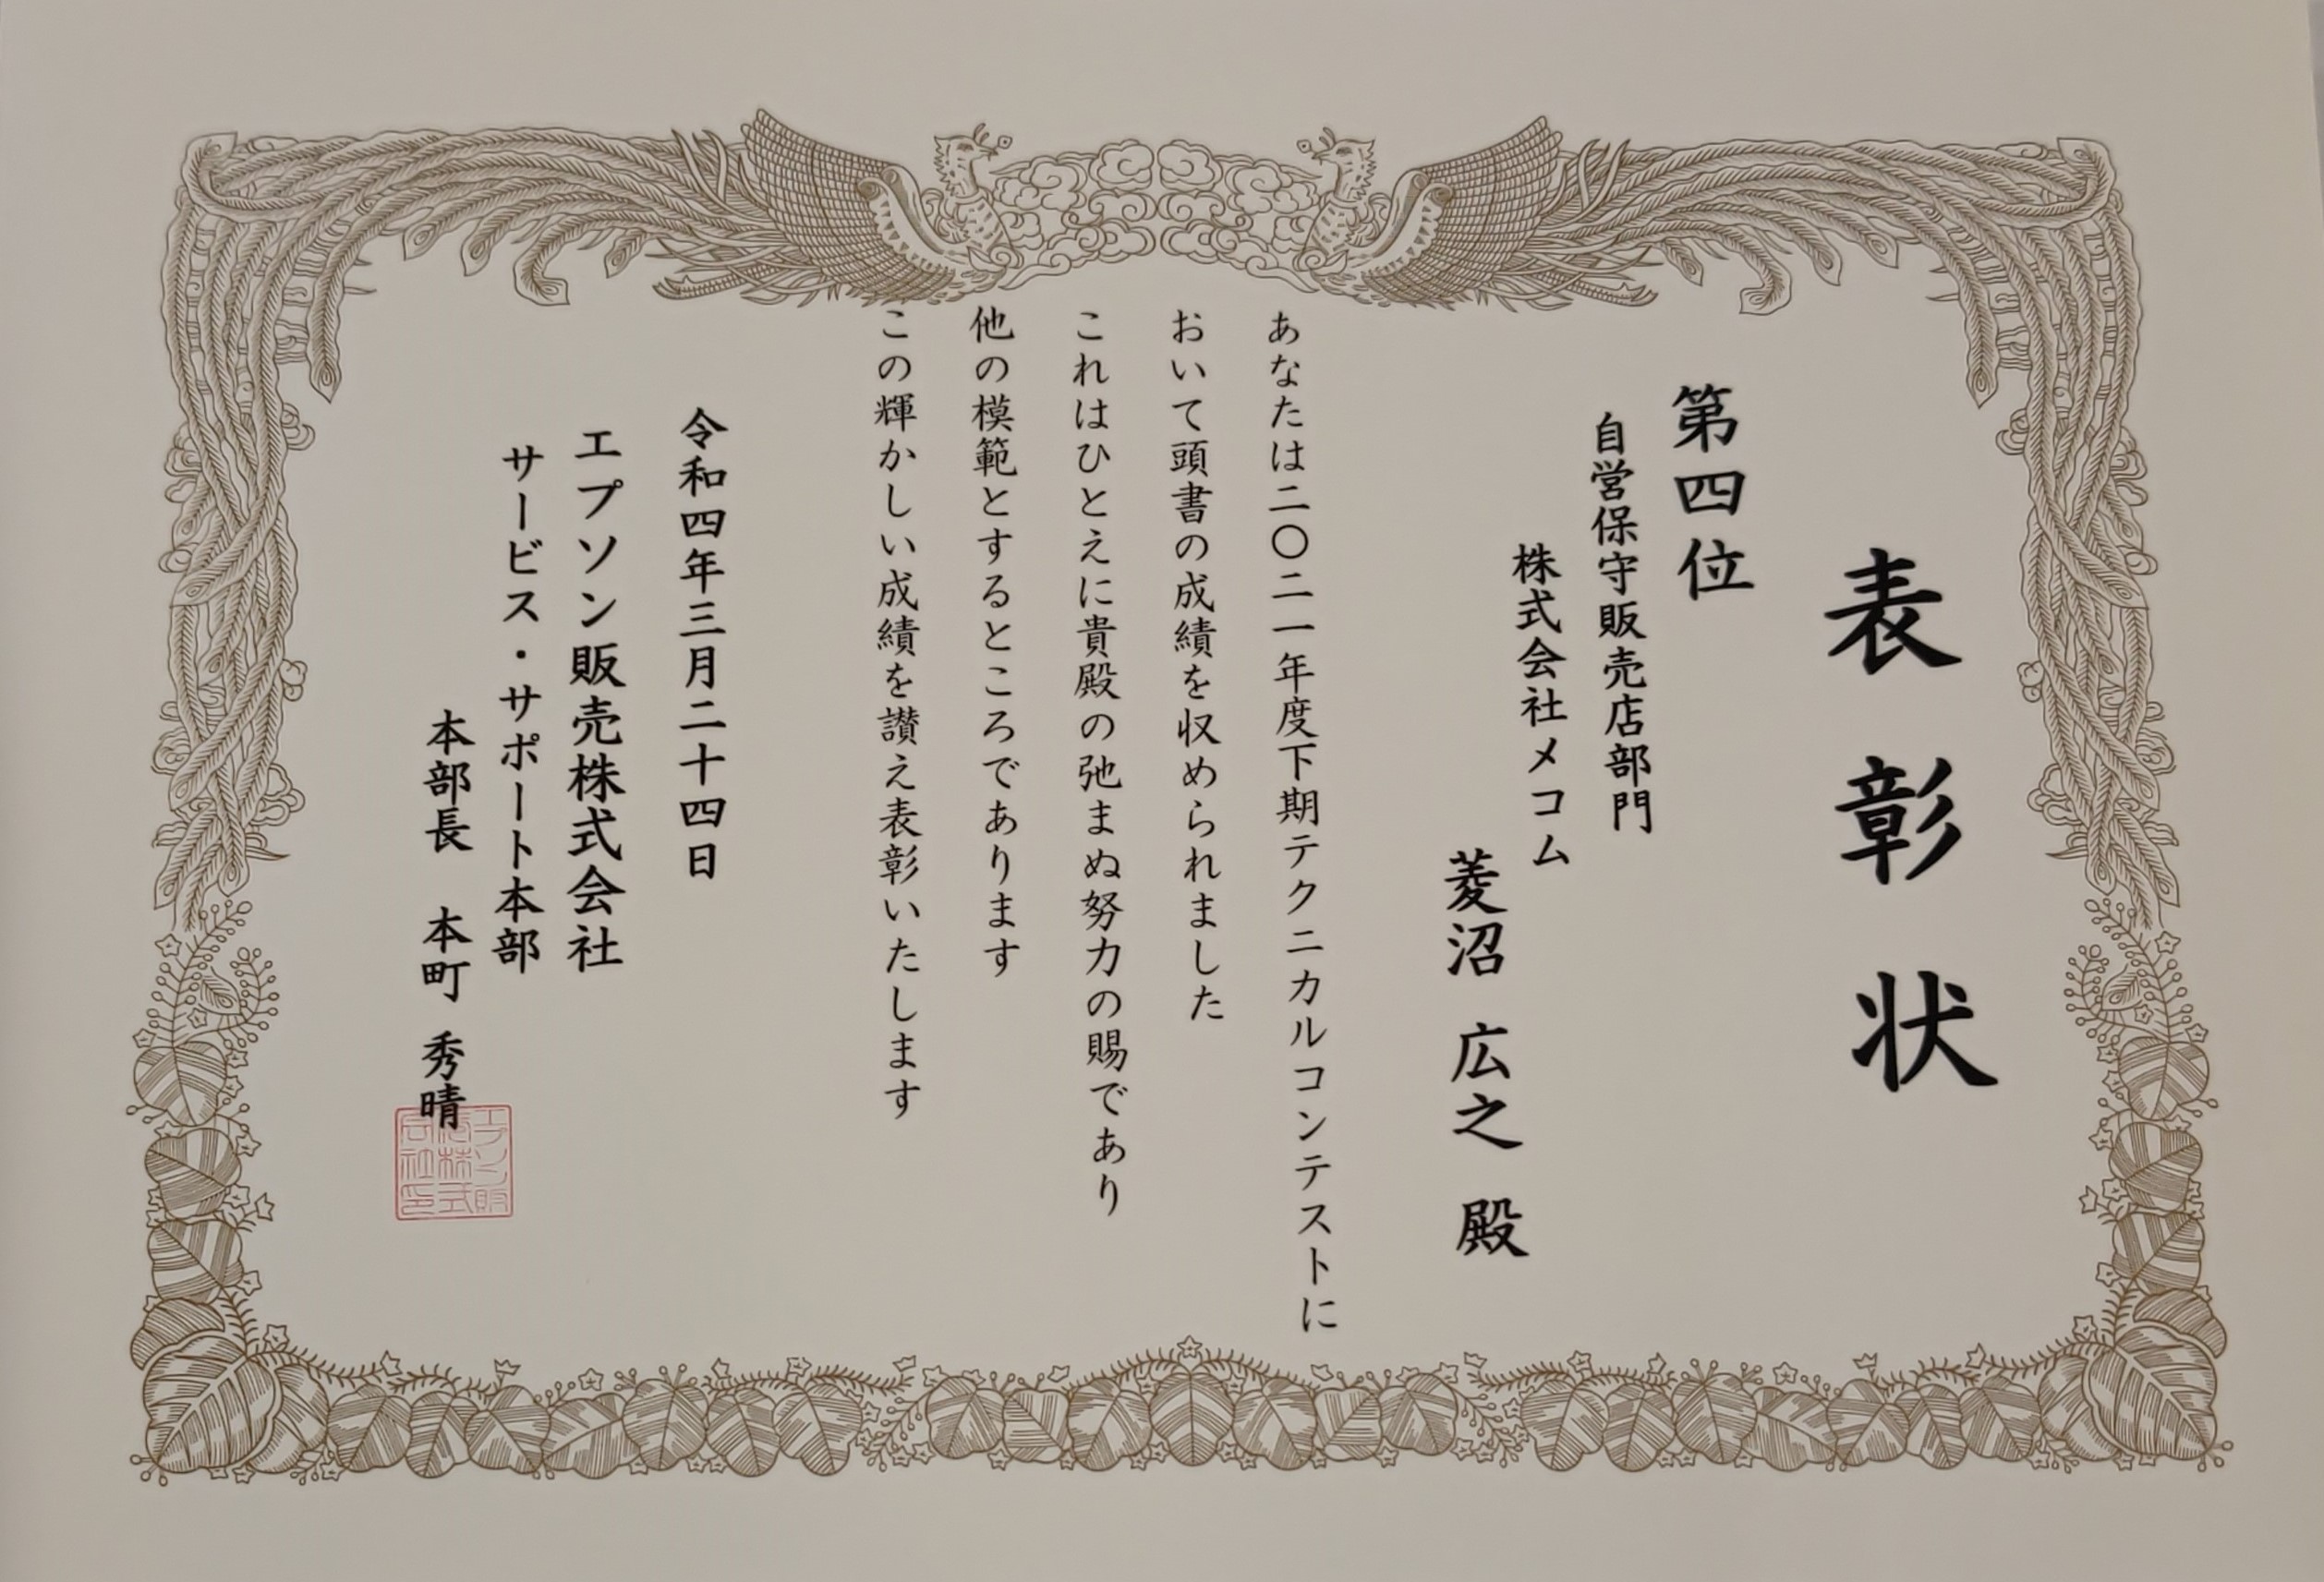 表彰状
第四位
自営保守販売店部門
株式会社メコム
菱沼 広之 殿
あなたは二〇二一年度下期テクニカルコンテストに
おいて頭書の成績を収められました
これはひとえに貴殿の弛まぬ努力の賜であり
他の模範とするところであります
この輝かしい成績を讃え表彰いたします
令和四年三月二十四日
エプソン販売株式会社
サービス・サポート本部
本部長 本町 秀晴